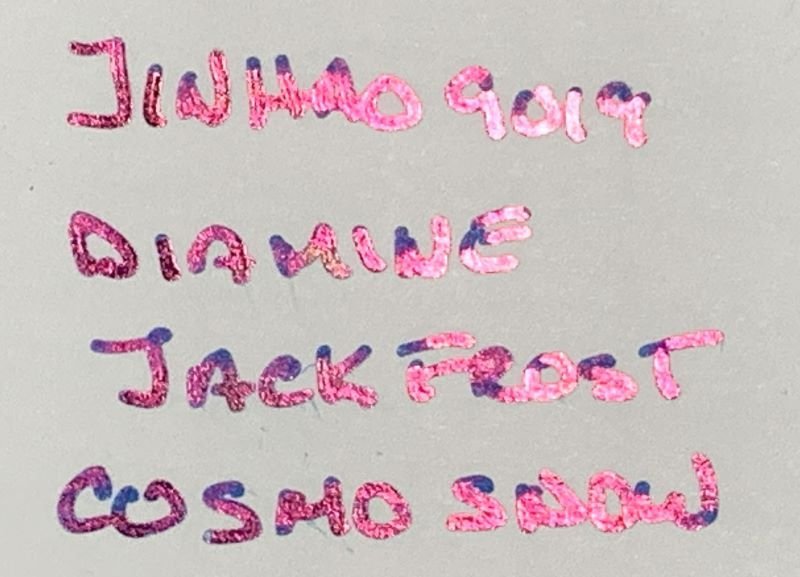 JINHAO 9019
DIAMINE
JACK FROST
COSMO SNOW